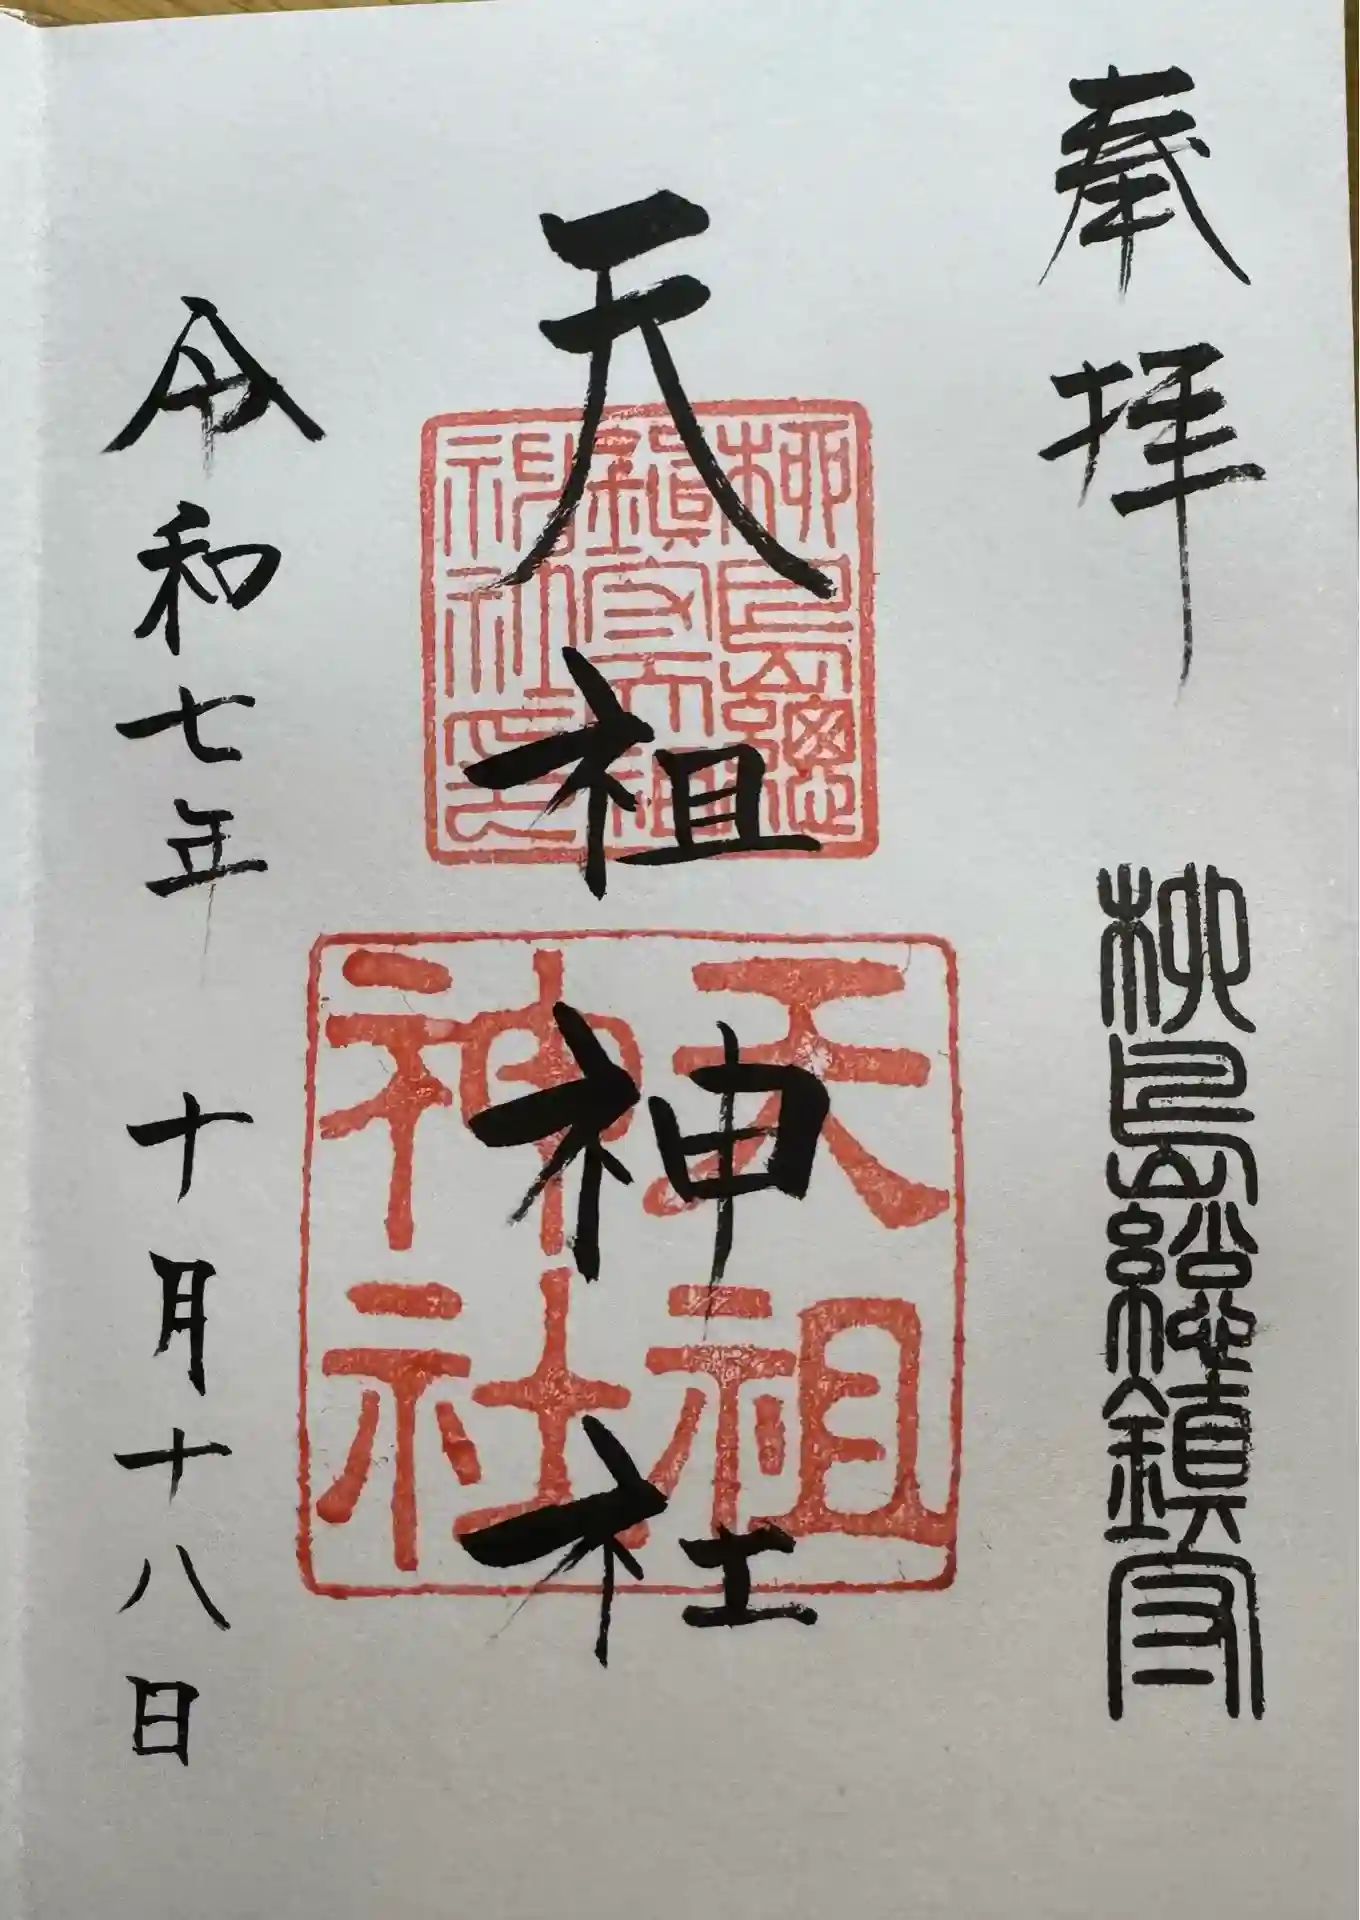 奉拝
柳島総鎮守
天祖神社
柳島總
鎮守天祖
神社印
天祖
神社
令和七年 十月十八日